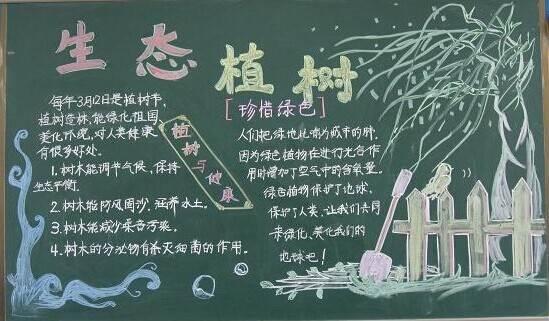 生态植树
[珍惜绿色]
每年3月12日是植树节,
植树造林,能绿化祖国
美化环境,对人类健康
有很多好处。
1.树木能调节气候,保持
生态平衡。
2.树木能防风固沙,涵养水土。
3.树木能减少噪音污染。
4.树木的分泌物有杀灭细菌的作用。
植树与健康
人们把绿地比喻为城市的肺,
因为绿色植物在进行光合作
用时增加了空气中的含氧量。
绿色植物保护了地球,
保护了人类,让我们共同
来绿化、美化我们的
地球吧!